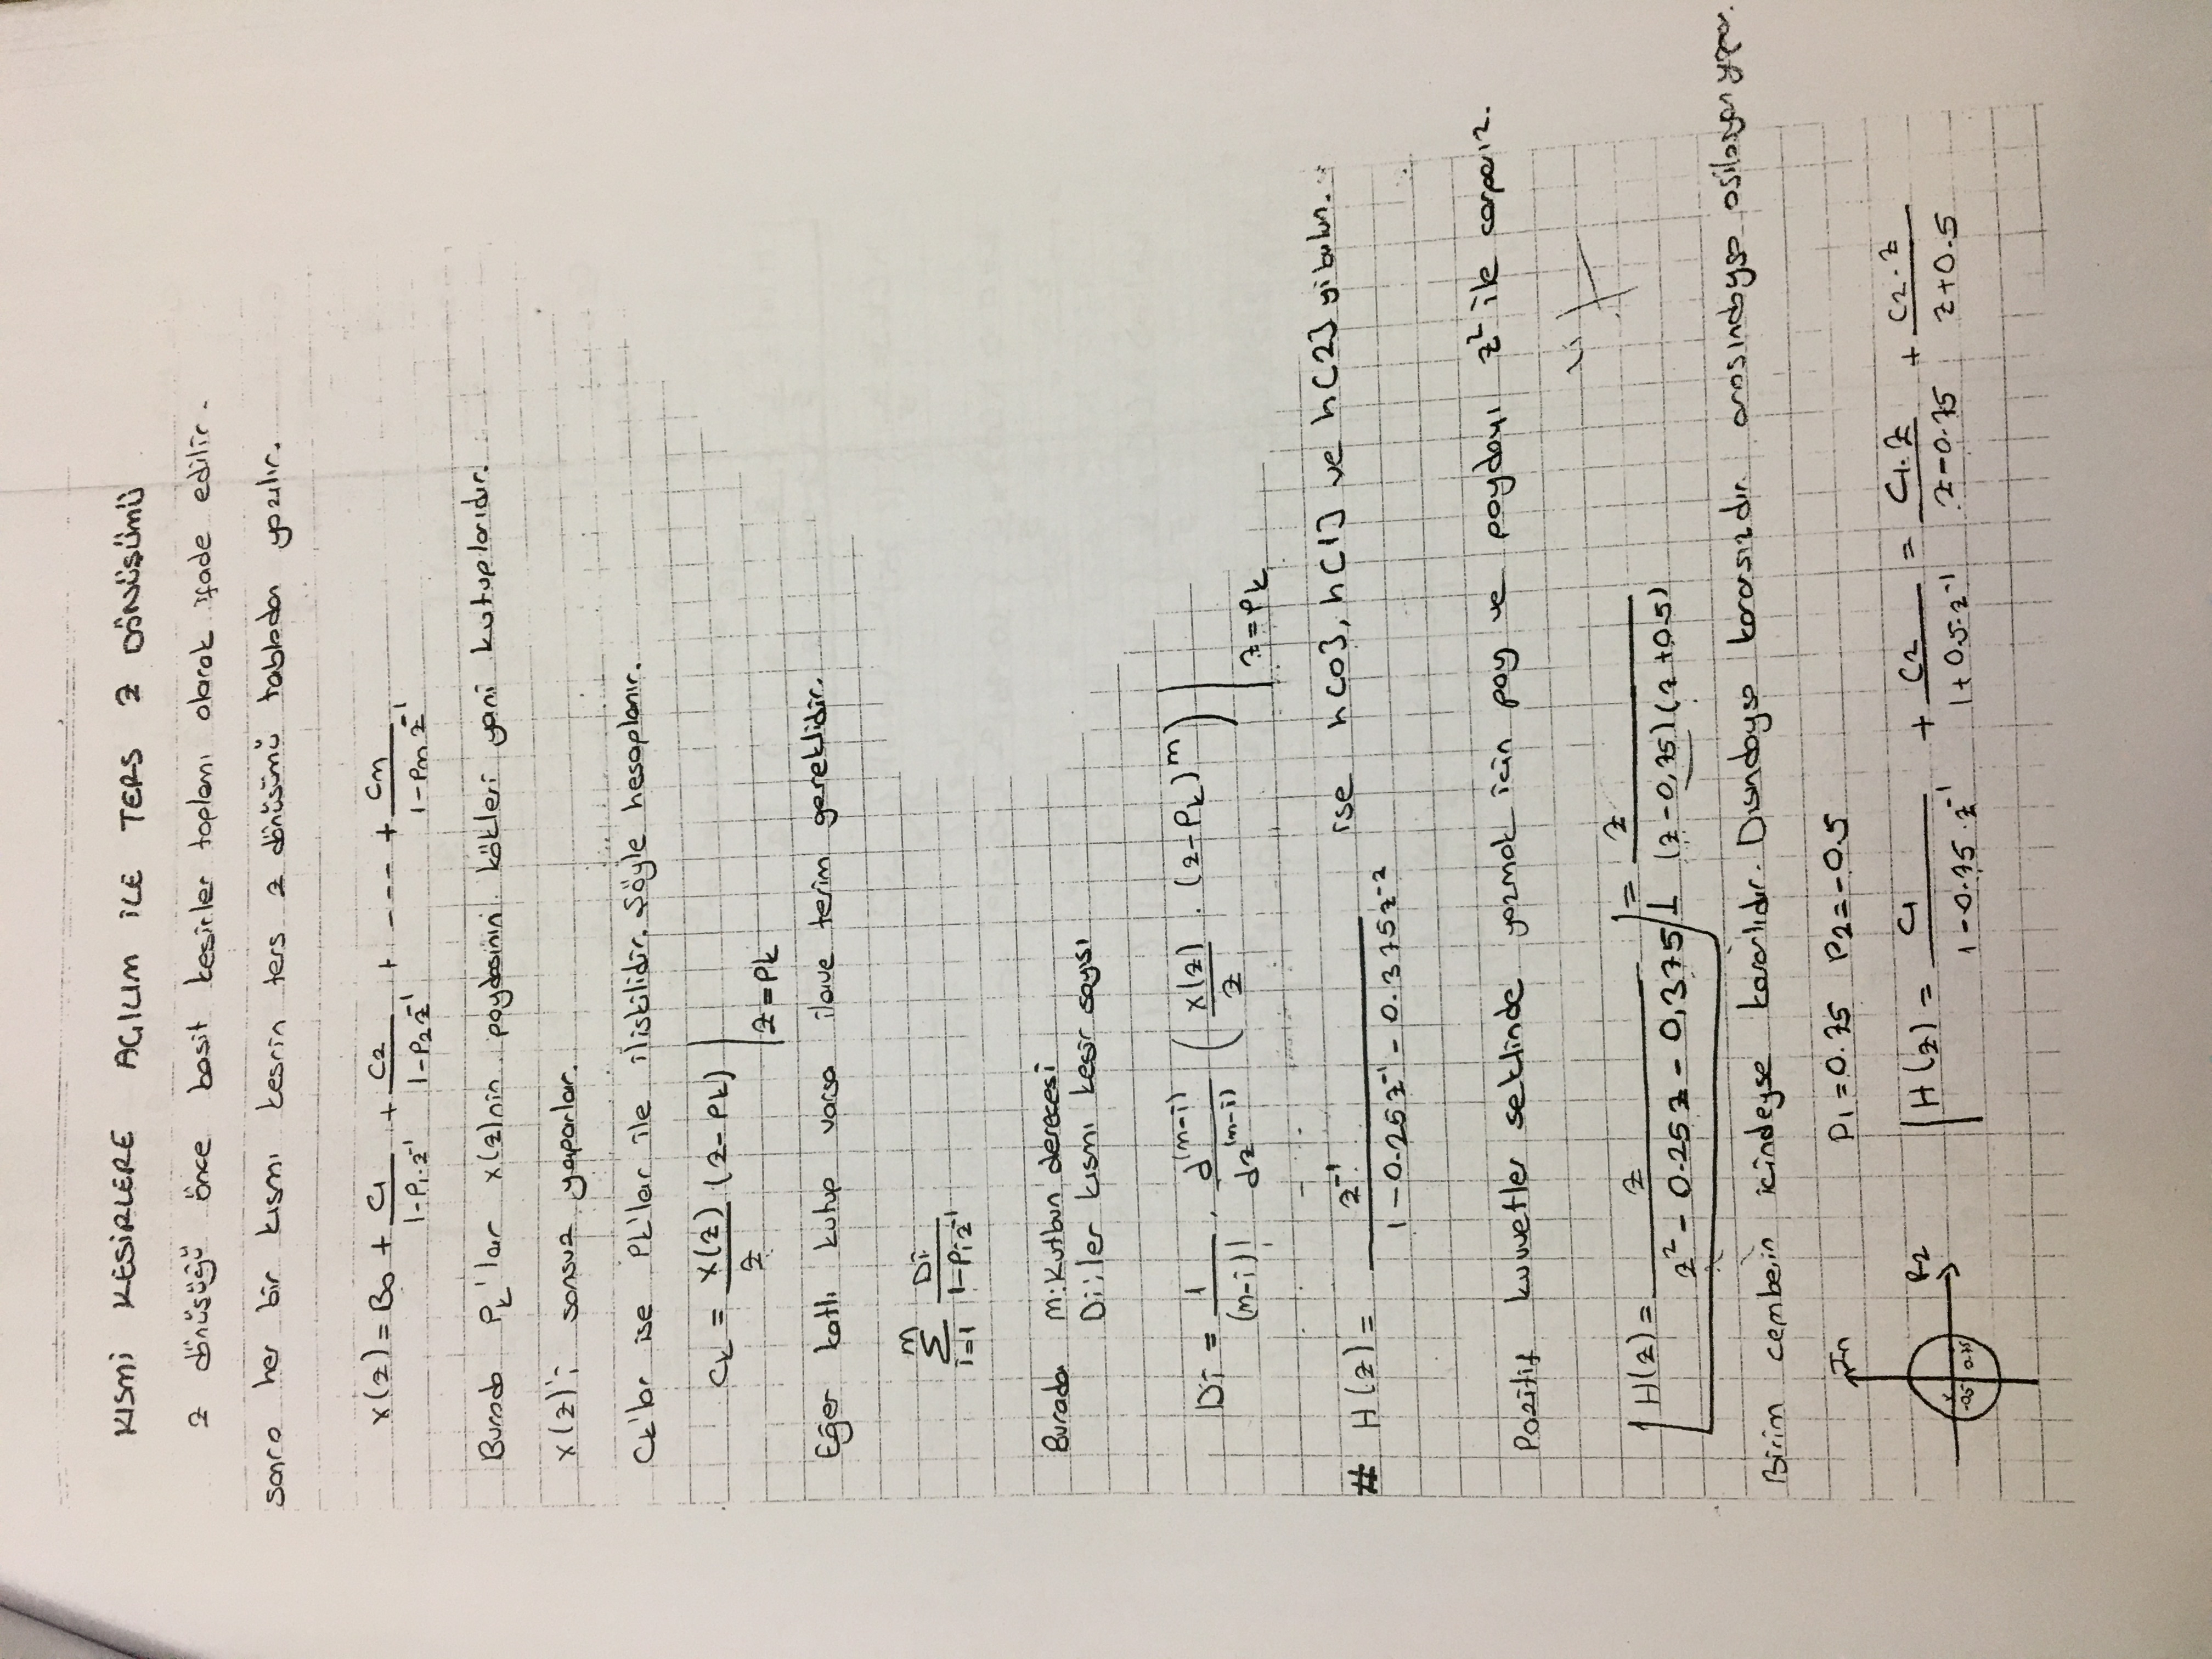 KISMİ KESİRLERE AÇILIM İLE TERS Z DÖNÜŞÜMÜ
z dönüşüğü önce basit kesirler toplamı olarak ifade edilir.
sonra her bir kısmı kesrin ters z dönüsümü tablodan yazılır.
X(z) = B0 + C1/(1-P1.z^-1) + C2/(1-P2 z^-1) + --- + Cm/(1-Pm z^-1)
Burada Pk'lar X(z)nin paydasının kökleri yani kutuplarıdır.
X(z)'i sonsuz yaparlar.
Ck'lar ise Pk'lar ile ilişkilidir. Şöyle hesaplanır.
Ck = X(z)/z (z-Pk) | z=Pk
Eğer katlı kutup varsa ilave terim gereklidir.
m Σ i=1 Di/(1-Pi z^-1)
Burada m: Kutbun derecesi
Di: ler kısmı kesir sayısı
Di = 1/(m-i)! . d^(m-i)/dz^(m-i) ( X(z)/z . (z-Pk)^m ) | z=Pk
# H(z) = z^-1/(1-0.25z^-1 - 0.375z^-2) ise h[0], h[1] ve h[2] yi bulun.
Pozitif kuvvetler seklinde yazmak icin pay ve paydayı z^2 ile carparız.
H(z) = z/(z^2 - 0.25z - 0,375) = z/((z-0,75)(z+0.5))
Birim cemberin icindeyse kararlıdır. Disındaysa kararsızdır. arasındaysa osilasyon yapar.
Im P1=0.75 P2=-0.5
Rz
-0.5 0.75
H(z) = C1/(1-0.75.z^-1) + C2/(1+0.5.z^-1) = C1.z/(z-0.75) + C2.z/(z+0.5)